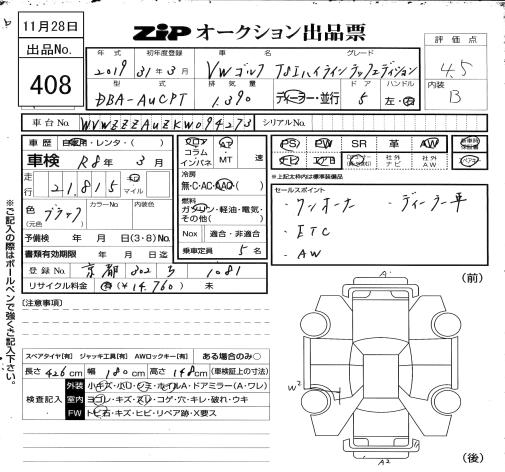 11月28日
ZIP オークション出品票
出品No.
408
評価点
4.5
内装
B
年式 初年度登録 車名 グレード
2019 31年3月 VWゴルフ TSIハイラインテックエディション
型式 排気量 ドア ハンドル
DBA-AUCPT 1,390 ディーラー・並行 5 左・右
車台No. WVWZZZAUZKW094273 シリアルNo.
車歴 自家用・レンタ・( )
車検 R8年3月
走行 21,815 km マイル
色(元色) ブラック カラーNo 内装色
予備検 年 月 日(3・8)No.
書類有効期限 年 月 日迄
登録No. 京都 302 ち 1081
リサイクル料金 有(¥14,760) 未
フロア コラム インパネ AT MT 速
冷房 無・C・AC・AAC・( )
燃料 ガソリン・軽油・電気・その他( )
Nox 適合・非適合
乗車定員 5名
PS PW SR 革 AW 新車時保証書
ナビ 社外ナビ 社外AW 記録簿
★上記太枠内は標準装備品
セールスポイント
・ワンオーナー ・ディーラー車
・ETC
・AW
[注意事項]
スペアタイヤ[有] ジャッキ工具[有] AWロックキー[有] ある場合のみ○
長さ426cm 幅180cm 高さ148cm (車検証上の寸法)
検査記入
外装 小キズ・小凹・シミ・ホイルA・ドアミラー(A・ワレ)
室内 ヨゴレ・キズ・スレ・コゲ・穴・キレ・破れ・ウキ
FW トビ石・キズ・ヒビ・リペア跡・X要ス
※ご記入の際はボールペンで強くご記入下さい。
(前)
A'
W2
A2
(後)